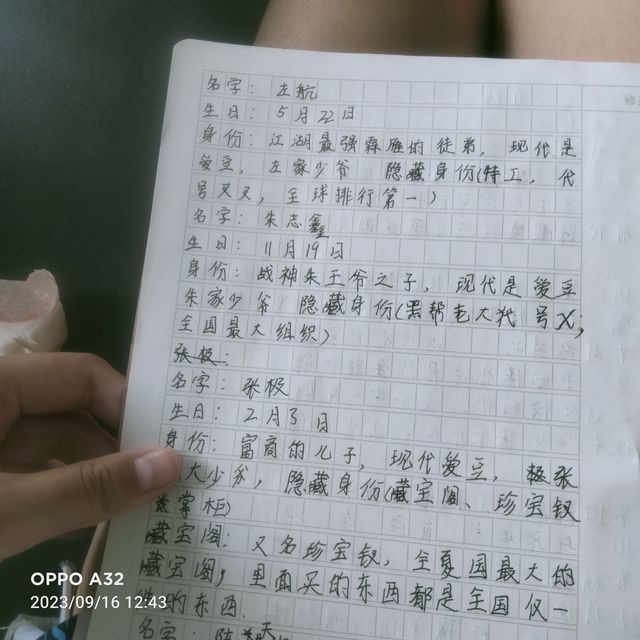 名字：左航
生日：5月22日
身份：江湖最强霖雁的徒弟，现代是
爱豆，左家少爷 隐藏身份(特工，代
号叉叉，全球排行第一)
名字：朱志鑫
生日：11月19日
身份：战神朱王爷之子，现代是爱豆
朱家少爷 隐藏身份(黑帮老大代号X，
全国最大组织)
张极：
名字：张极
生日：2月3日
身份：富商的儿子，现代爱豆，张
大少爷，隐藏身份(藏宝阁、珍宝钗
掌柜)
藏宝阁：又名珍宝钗，全夏国最大的
藏宝阁，里面买的东西都是全国仅一
的东西
名字：陈天
修
OPPO A32
2023/09/16 12:43